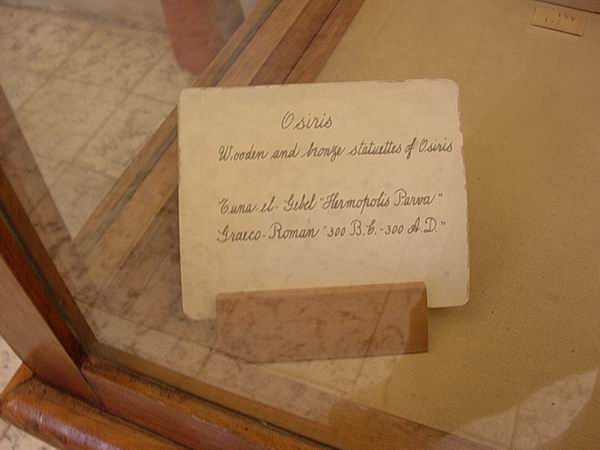 Osiris
Wooden and bronze statuettes of Osiris
Tuna-el-Gebel "Hermopolis Parva"
Graeco-Roman "300 B.C.-300 A.D."